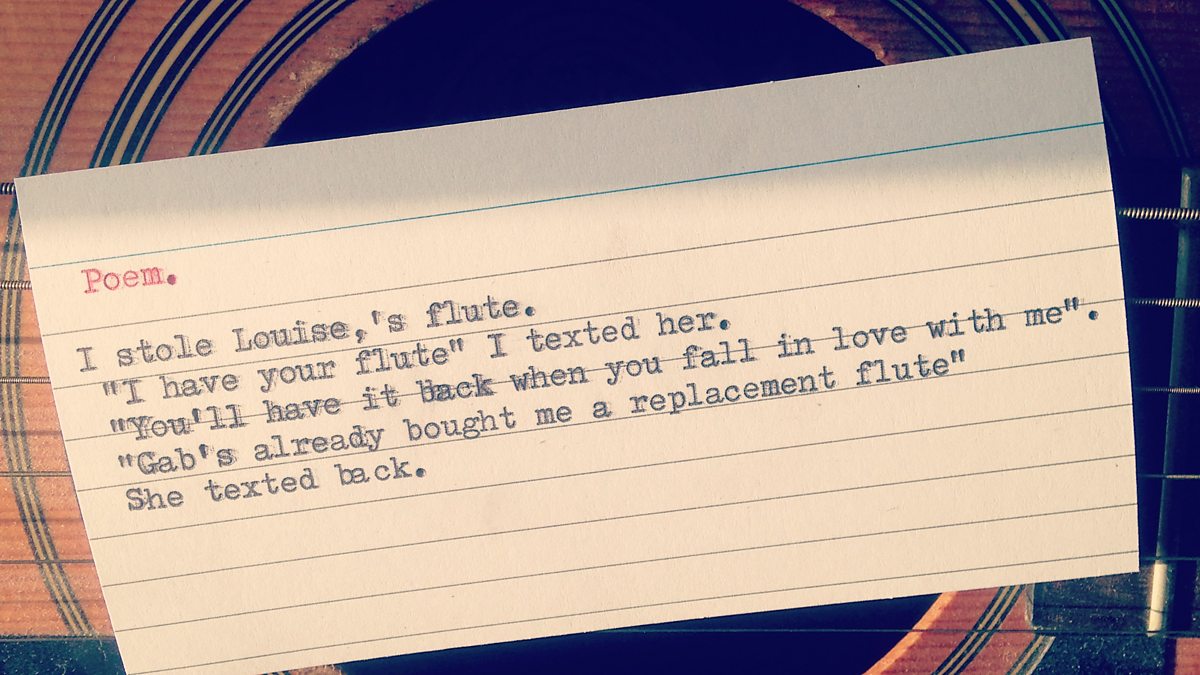 Poem.
I stole Louise,'s flute.
"I have your flute" I texted her.
"You'll have it back when you fall in love with me".
"Gab's already bought me a replacement flute"
She texted back.